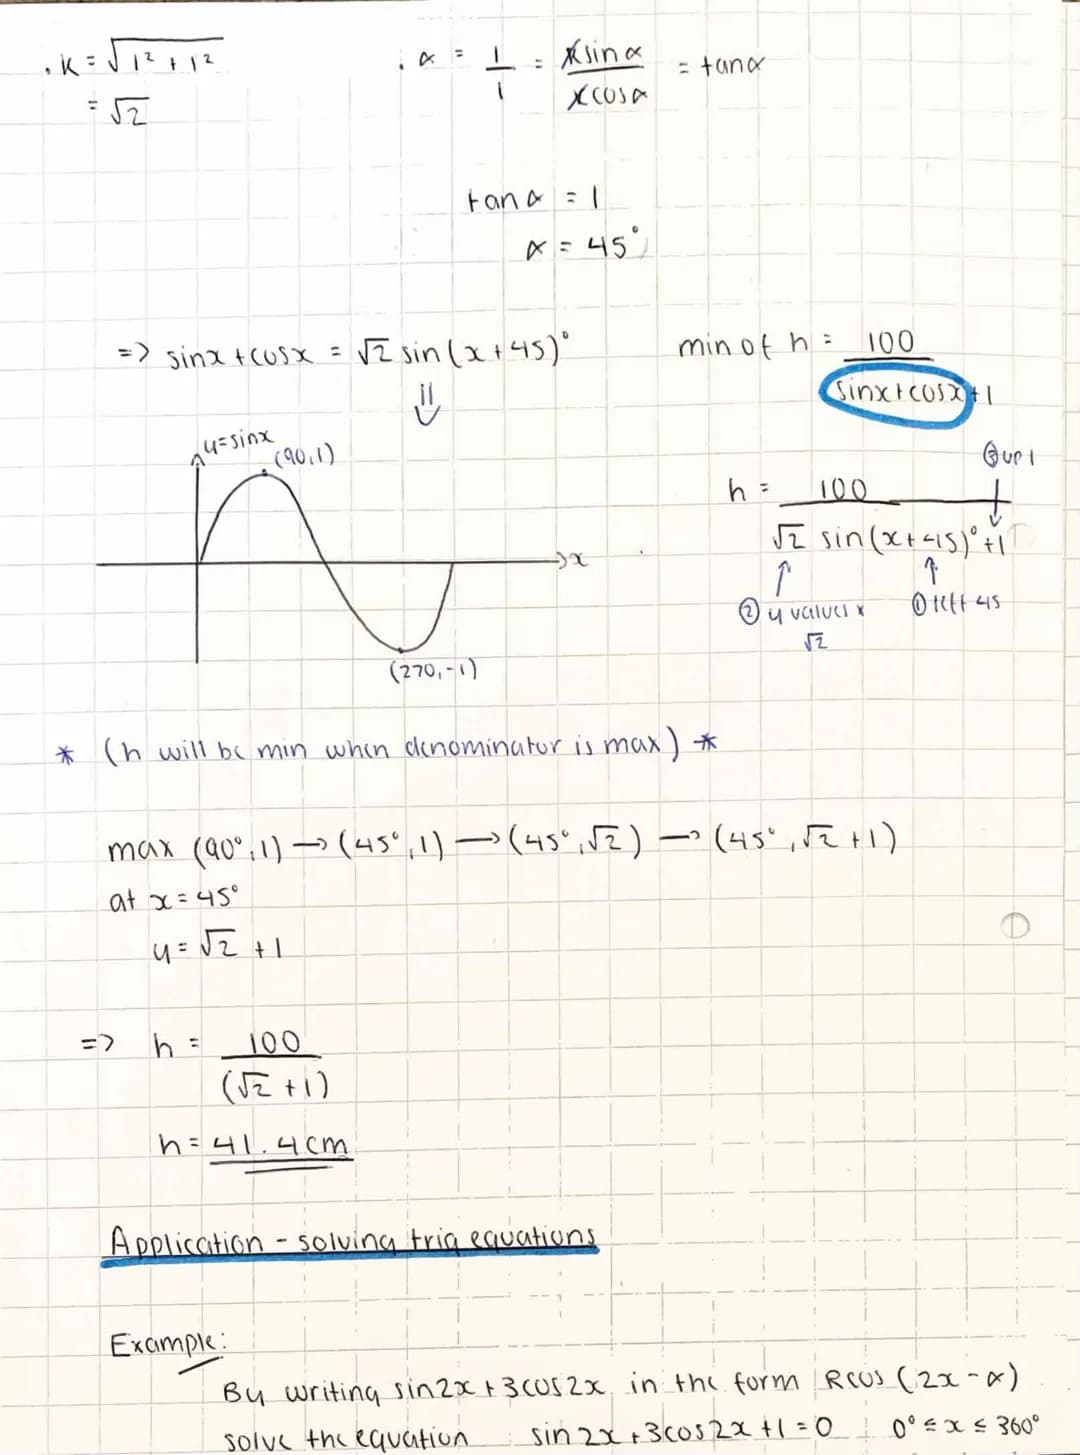 . K = √1² + 1²
= √2
. α = 1/1 = K sin α / K cos α = tan α
tan α = 1
α = 45°
=> sinx + cosx = √2 sin(x + 45)°
min of h = 100 / sinx + cosx + 1
y=sinx
(90,1)
x
(270,-1)
③ up 1
h = 100 / √2 sin(x + 45)° + 1
② y values x √2
① left 45
* (h will be min when denominator is max) *
max (90°, 1) → (45°, 1) → (45°, √2) → (45°, √2 + 1)
at x = 45°
y = √2 + 1
=> h = 100 / (√2 + 1)
h = 41.4cm
Application - solving trig equations
Example:
By writing sin2x + 3cos2x in the form Rcos (2x - α)
solve the equation sin 2x + 3cos 2x + 1 = 0 0° ≤ x ≤ 360°